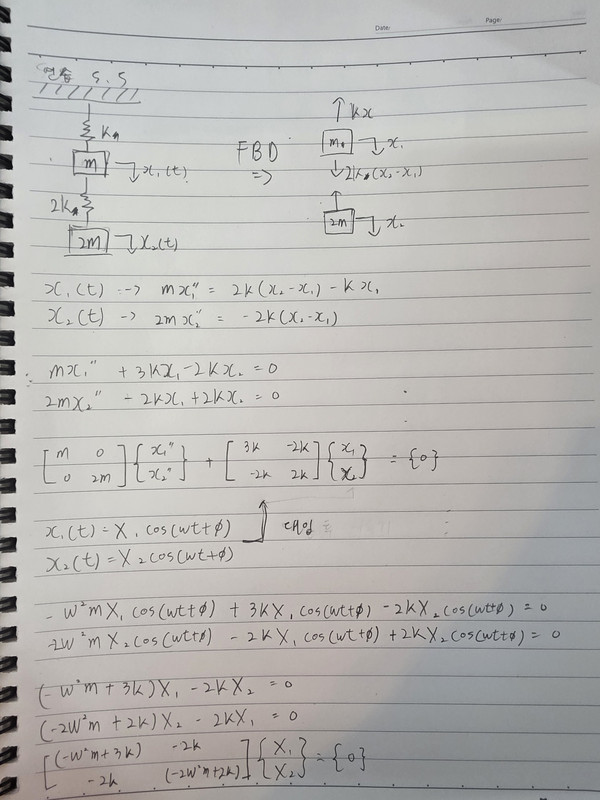 Date: Page:
연습 5.5
k
m x₁(t)
2k
2m x₂(t)
FBD
=>
kx
m x₁
2k(x₂-x₁)
2m x₂
x₁(t) --> mx₁" = 2k(x₂-x₁) - kx₁
x₂(t) -> 2mx₂" = -2k(x₂-x₁)
mx₁" + 3kx₁ - 2kx₂ = 0
2mx₂" - 2kx₁ + 2kx₂ = 0
[m 0; 0 2m] {x₁"; x₂"} + [3k -2k; -2k 2k] {x₁; x₂} = {0}
x₁(t) = X₁ cos(wt+ϕ) 대입
x₂(t) = X₂ cos(wt+ϕ)
-w²mX₁ cos(wt+ϕ) + 3kX₁ cos(wt+ϕ) - 2kX₂ cos(wt+ϕ) = 0
-2w²mX₂ cos(wt+ϕ) - 2kX₁ cos(wt+ϕ) + 2kX₂ cos(wt+ϕ) = 0
(-w²m + 3k)X₁ - 2kX₂ = 0
(-2w²m + 2k)X₂ - 2kX₁ = 0
[(-w²m+3k) -2k; -2k (-2w²m+2k)] {X₁; X₂} = {0}